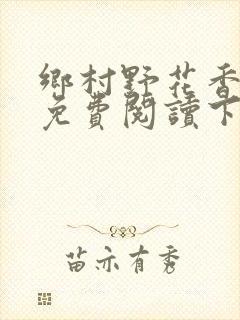 鄉村野花香
免費閱讀下
苗亦有秀